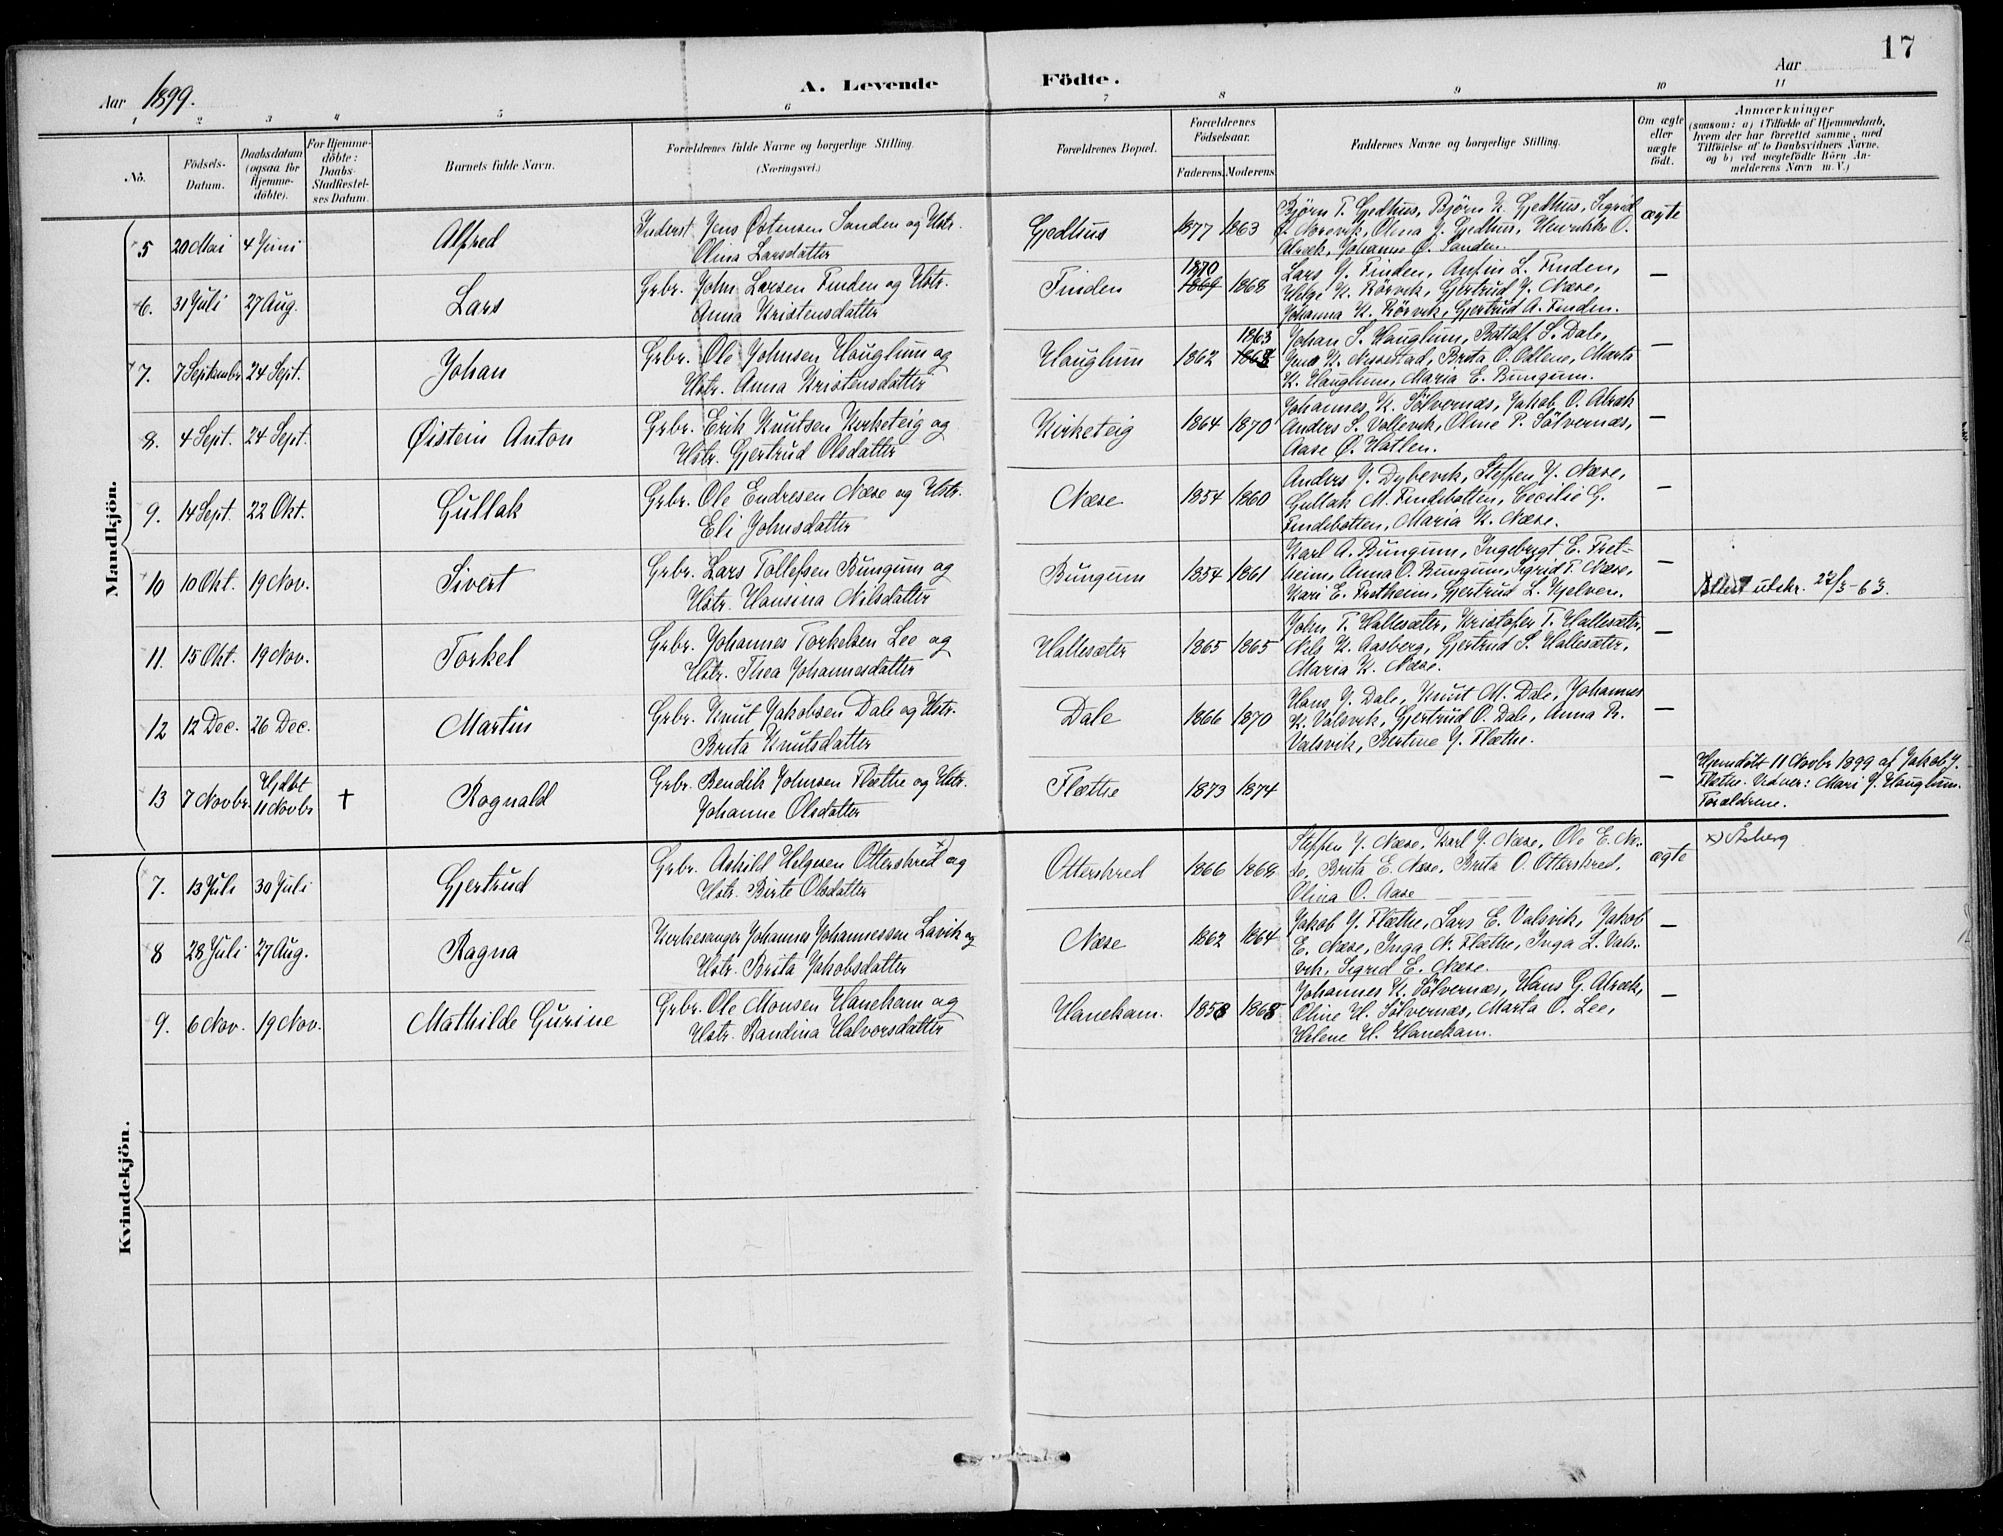 17
Aar 1899.
A. Levende Födte.
Aar
1 2 3 4 5 6 7 8 9 10 11
No.
Födsels-
Datum.
Daabsdatum
(ogsaa for
Hjemme-
döbte).
For Hjemme-
döbte:
Daabs-
Stadfæstel-
ses Datum.
Barnets fulde Navn.
Forældrenes fulde Navne og borgerlige Stilling
(Næringsvei.)
Forældrenes Bopæl.
Forældrenes
Födselsaar.
Faderens. Moderens.
Faddernes Navne og borgerlige Stilling.
Om ægte
eller
uægte
födt.
Anmærkninger
(saasom: a) i Tilfælde af Hjemmedaab,
hvem der har forrettet samme, med
Tilföielse af to Daabsvidners Navne.
og b) ved uægtefödte Börn An-
melderens Navn m. V.)
Mandkjön.
5 20 Mai 4 Juni
Alfred
Inderst Jens Østensen Sanden og Hstr.
Olina Larsdatter
Gjedhus
1877 1863
Björn T. Gjedhus, Björn K. Gjedhus, Sigrid
Norevik, Olena J. Gjedhus, Henrikke O.
Alræk, Johanne Ø. Sanden.
ægte
6. 31 Juli 27 Aug.
Lars
Grbr. John Larsen Finden og Hstr.
Anna Kristensdatter
Finden
1870
1869 1868
Lars J. Finden, Anfin L. Finden,
Helge K. Rörvik, Gjertrud J. Næse,
Johanna K. Rörvik, Gjertrud A. Finden.
—
7. 7 September 24 Sept.
Johan
Grbr. Ole Johnsen Hauglum og
Hstr. Anna Kristensdatter
Hauglum
1863
1862 1864
Johan S. Hauglum, Bottolf S. Dale,
Jens K. Nessestad, Brita O. Odlene, Marta
K. Hauglum, Maria E. Bungum.
—
8. 4 Sept. 24 Sept.
Øistein Anton
Grbr. Erik Knutsen Kirketeig og
Hstr. Gjertrud Olsdatter
Kirketeig
1864 1870
Johannes K. Sölvernæs, Jakob O. Alræk
Anders S. Valsvik, Oline P. Sölvernæs,
Aase Ø. Hatlen.
—
9. 14 Sept. 22 Okt.
Gullak
Grbr. Ole Endresen Næse og Hstr.
Eli Johnsdatter
Næse
1854 1860
Anders J. Dybevik, Steffen J. Næse,
Gullak M. Findebotten, Cecilie G.
Findebotten, Maria K. Næse.
—
10 10 Okt. 19 Nov.
Sivert
Grbr. Lars Tollefsen Bungum og
Hstr. Hansina Nilsdatter
Bungum
1854 1861
Karl A. Bungum, Ingebrigt E. Fret-
heim, Anna O. Bungum, Sigrid T. Næse,
Kari E. Fretheim, Gjertrud L. Hjelven.
—
Attest utskr. 22/3-63.
11. 15 Okt. 19 Nov.
Torkel
Grbr. Johannes Torkelsen Lee og
Hstr. Thea Johannesdatter
Hallesæter
1865 1865
John T. Hallesæter, Kristofer T. Hallesæter,
Nils K. Aasberg, Gjertrud S. Hallesæter,
Maria K. Næse.
—
12 12 Dec. 26 Dec.
Martin
Grbr. Knut Jakobsen Dale og Hstr.
Brita Knutsdatter
Dale
1866 1870
Hans J. Dale, Knut M. Dale, Johannes
K. Valsvik, Gjertrud O. Dale, Anna R.
Valsvik, Bertine J. Flæthe.
—
13 7 Novbr.
Hjdbt
11 Novbr
†
Ragnald
Grbr. Bendik Johnsen Flæthe og Hstr.
Johanne Olsdatter
Flæthe
1873 1874
—
Hjemdöbt 11 Novbr 1899 af Jakob J.
Flæthe. Vidner: Mari J. Hauglum.
Forældrene.
Kvindekjön.
7. 13 Juli 30 Juli
Gjertrud
Grbr. Askild Helgesen Otterskred x) og
Hstr. Birte Olsdatter
Otterskred
1866 1868
Steffen J. Næse, Karl J. Næse, Ole E. Næ-
se, Brita E. Næse, Brita O. Otterskred,
Olina O. Aase
ægte
x) Åsberg
8 28 Juli 27 Aug.
Ragna
Kirkesanger Johannes Johannessen Lavik og
Hstr. Brita Jakobsdatter
Næse
1862 1864
Jakob J. Flæthe, Lars E. Valsvik, Jakob
E. Næse, Inga N. Flæthe, Inga L. Vals-
vik, Sigrid E. Næse.
—
9. 6 Nov. 19 Nov.
Mathilde Gurine
Grbr. Ole Monsen Hanekam og
Hstr. Randina Halvorsdatter
Hanekam.
1858 1868
Johannes K. Sölvernæs, Hans G. Alræk,
Oline H. Sölvernæs, Marta O. Lee,
Helene H. Hanekam.
—